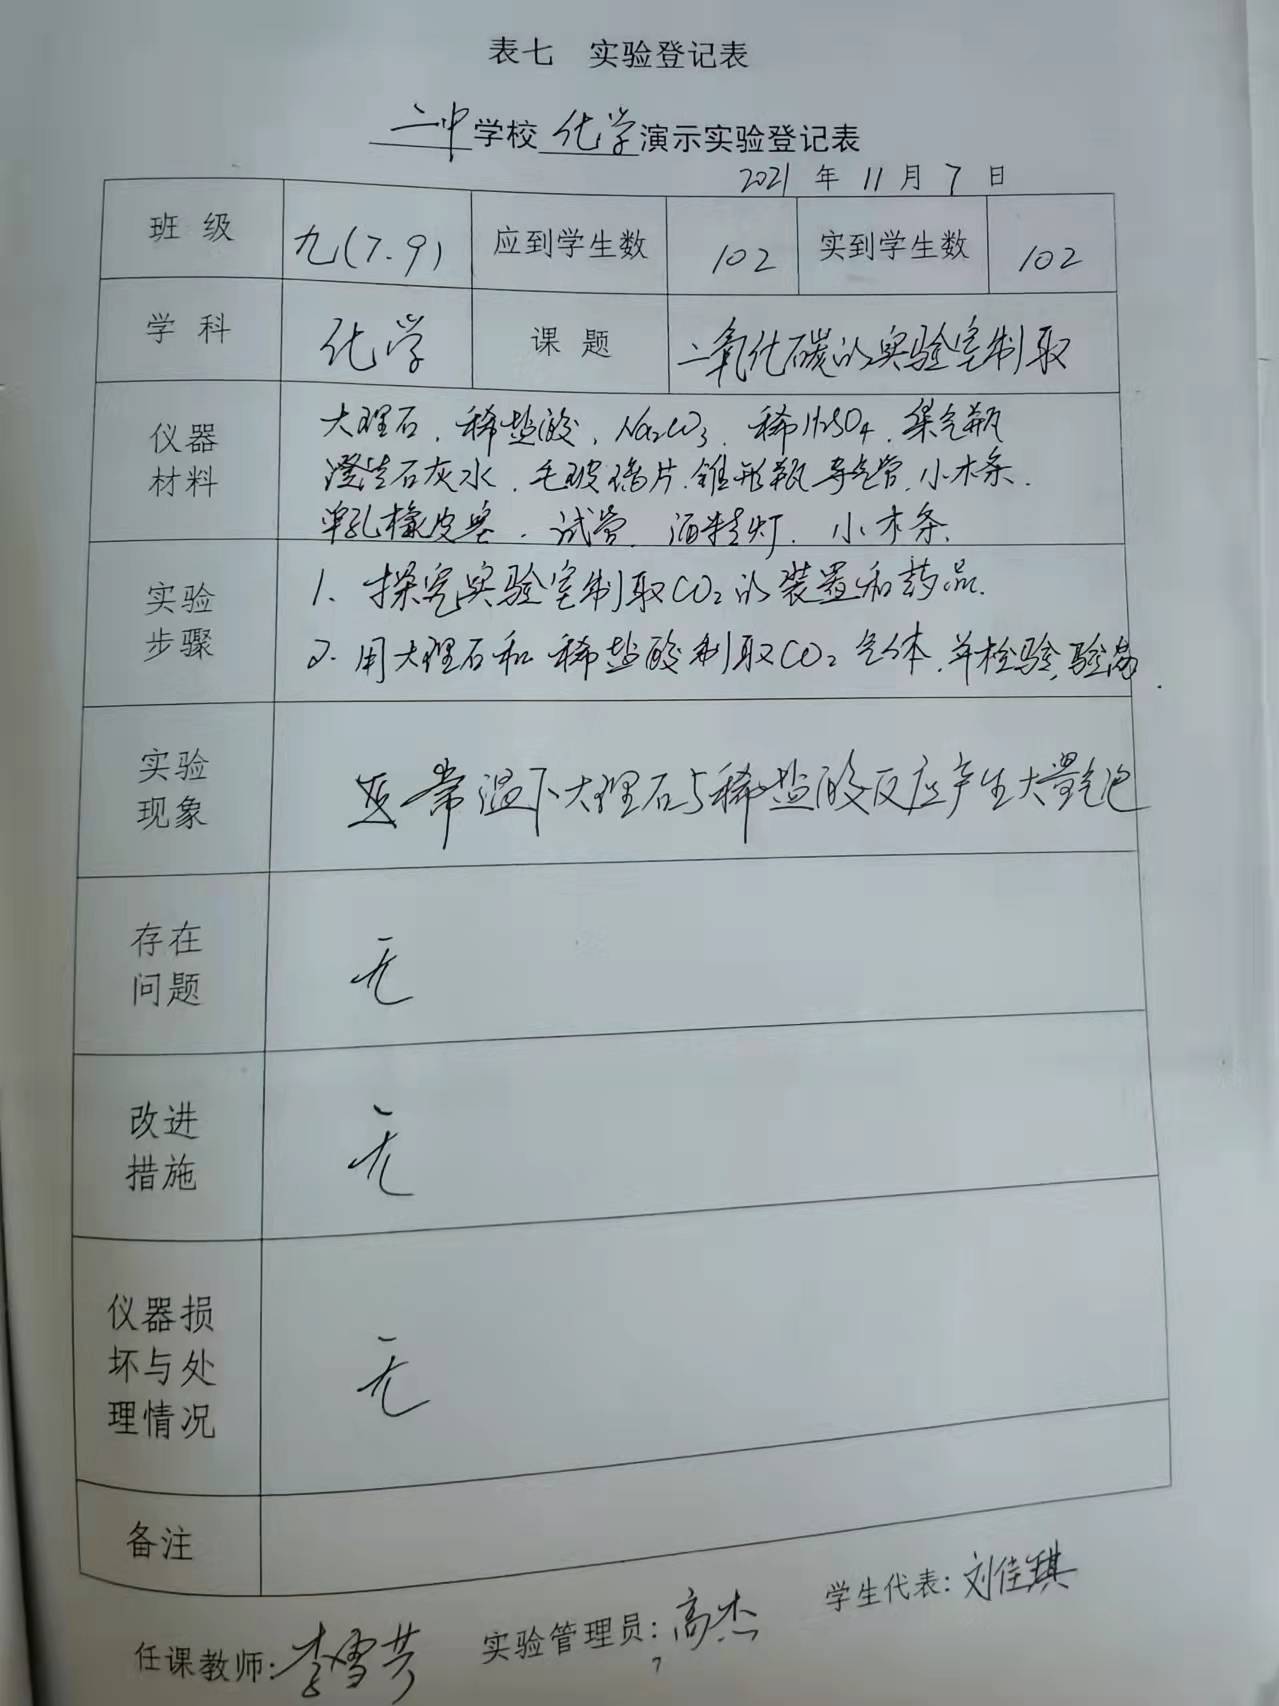 表七 实验登记表
二中学校化学演示实验登记表
2021 年 11 月 7 日
班级 九(7.9) 应到学生数 102 实到学生数 102
学科 化学 课题 二氧化碳的实验室制取
仪器材料
大理石、稀盐酸、Na₂CO₃、稀H₂SO₄、集气瓶
澄清石灰水、毛玻璃片、锥形瓶 导气管、小木条、
单孔橡皮塞、试管、酒精灯、小木条、
实验步骤
1. 探究实验室制取CO₂的装置和药品.
2. 用大理石和稀盐酸制取CO₂气体、并检验、验满.
实验现象
常温下大理石与稀盐酸反应产生大量气泡
存在问题
无
改进措施
无
仪器损坏与处理情况
无
备注
任课教师:李雪芳 实验管理员:高杰 学生代表:刘佳琪